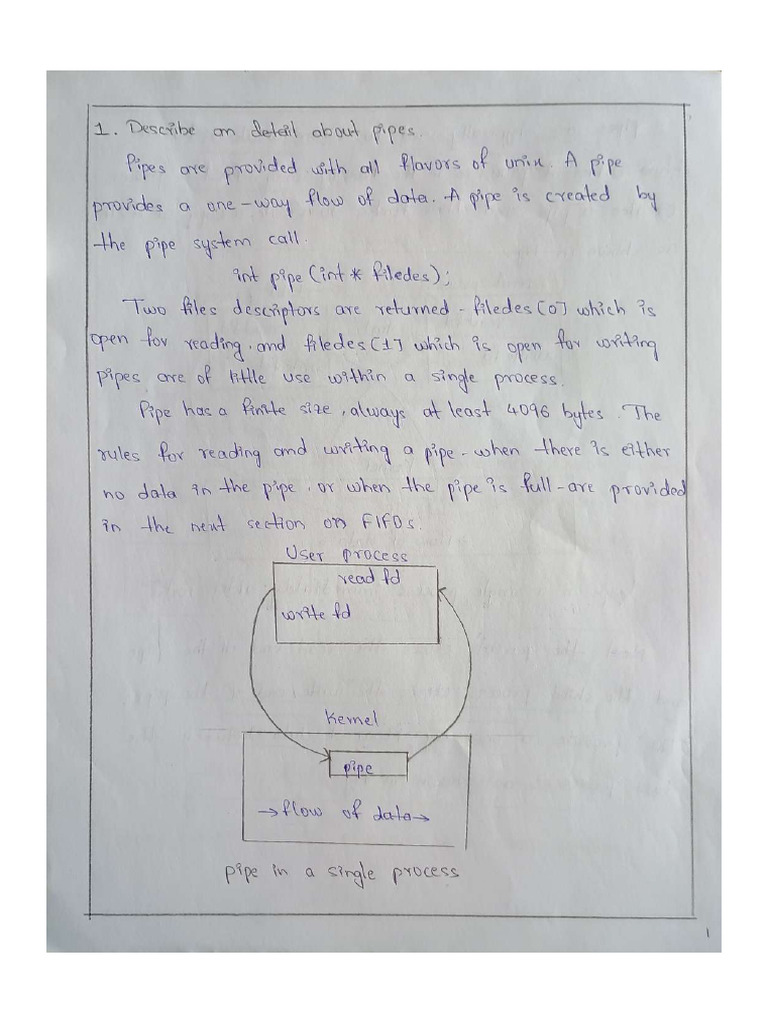 1. Describe on deteil about pipes.
Pipes are provided with all flavors of unix. A pipe
provides a one-way flow of data. A pipe is created by
the pipe system call.
int pipe (int * filedes);
Two files descriptors are returned - filedes [0] which is
open for reading, and filedes [1] which is open for writing
pipes are of little use within a single process.
Pipe has a finite size, always at least 4096 bytes. The
rules for reading and writing a pipe - when there is either
no data in the pipe, or when the pipe is full - are provided
in the next section on FIFOs.
User process
read fd
write fd
Kernel
pipe
→ flow of data →
pipe in a single process
1